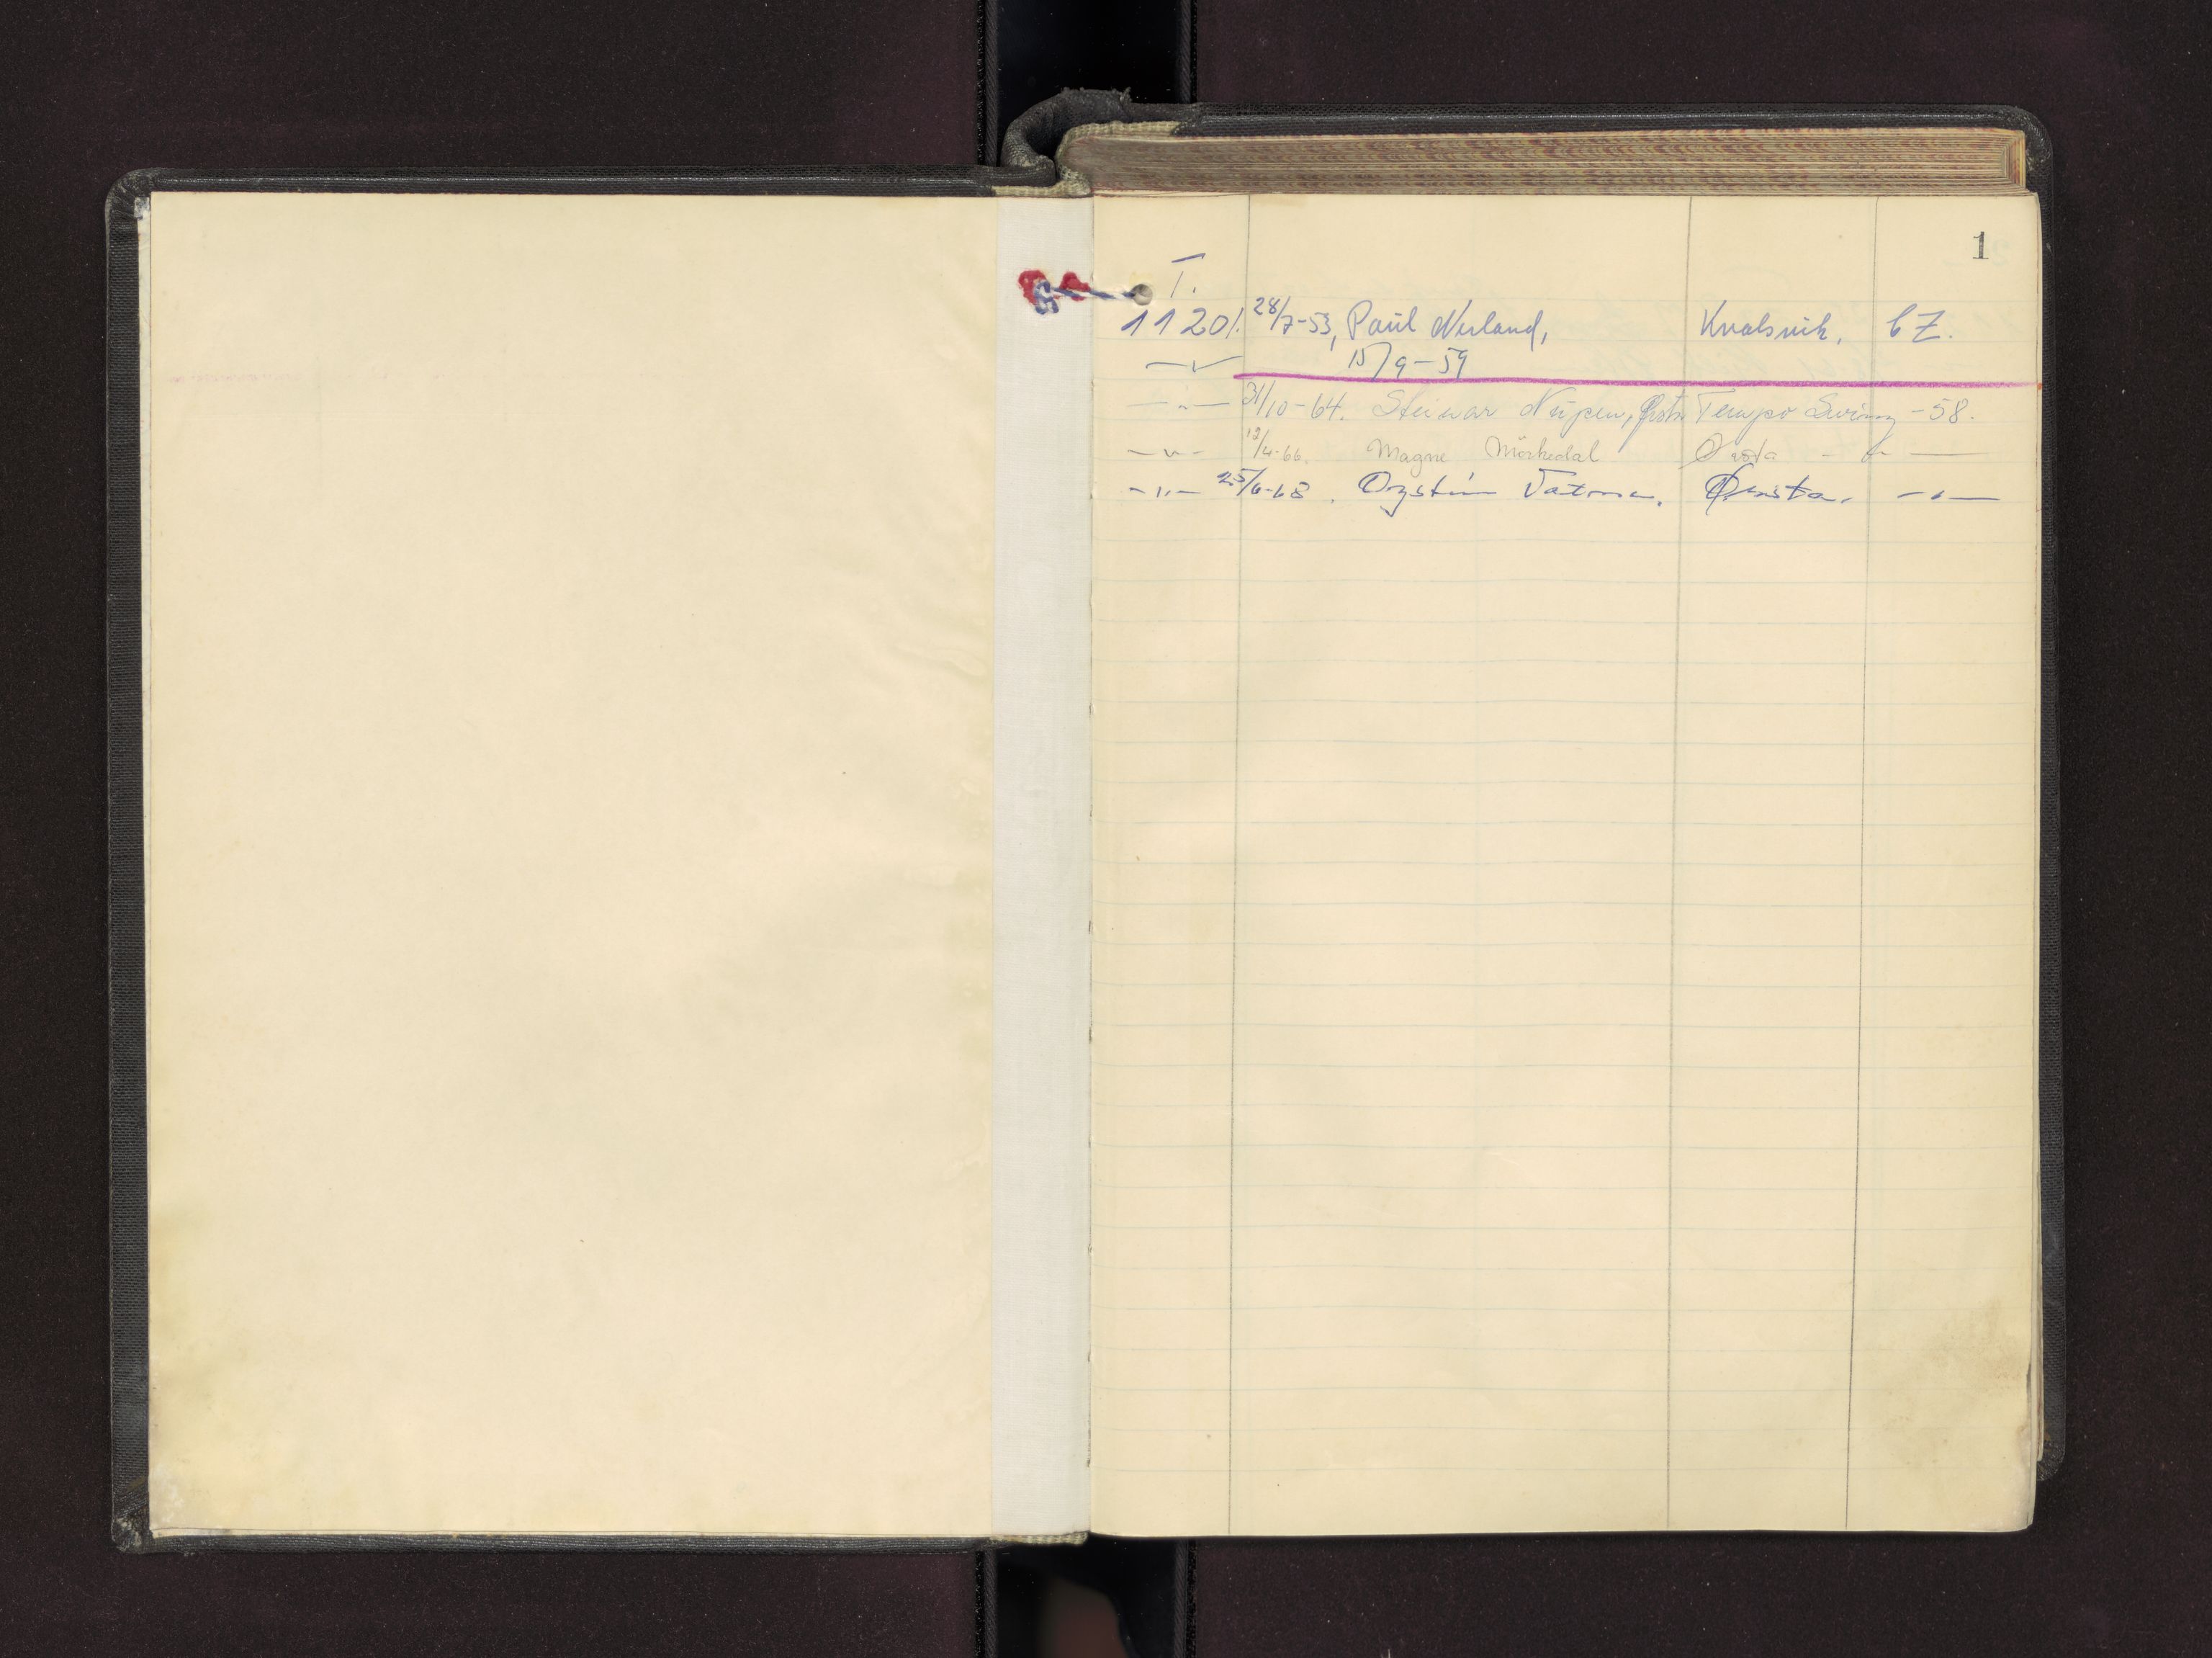 1
T.
11201. 28/7-53, Paul Nerland, Kvalsvik. CZ.
—〃— 15/9-59
—〃— 31/10-64. Steinar Nupen, Ørsta Tempo Swing -58.
—〃— 12/4-66. Magne Mørkedal Ørsta —〃—
—〃— 25/6-68. Øystein Vatne. Ørsta. —〃—